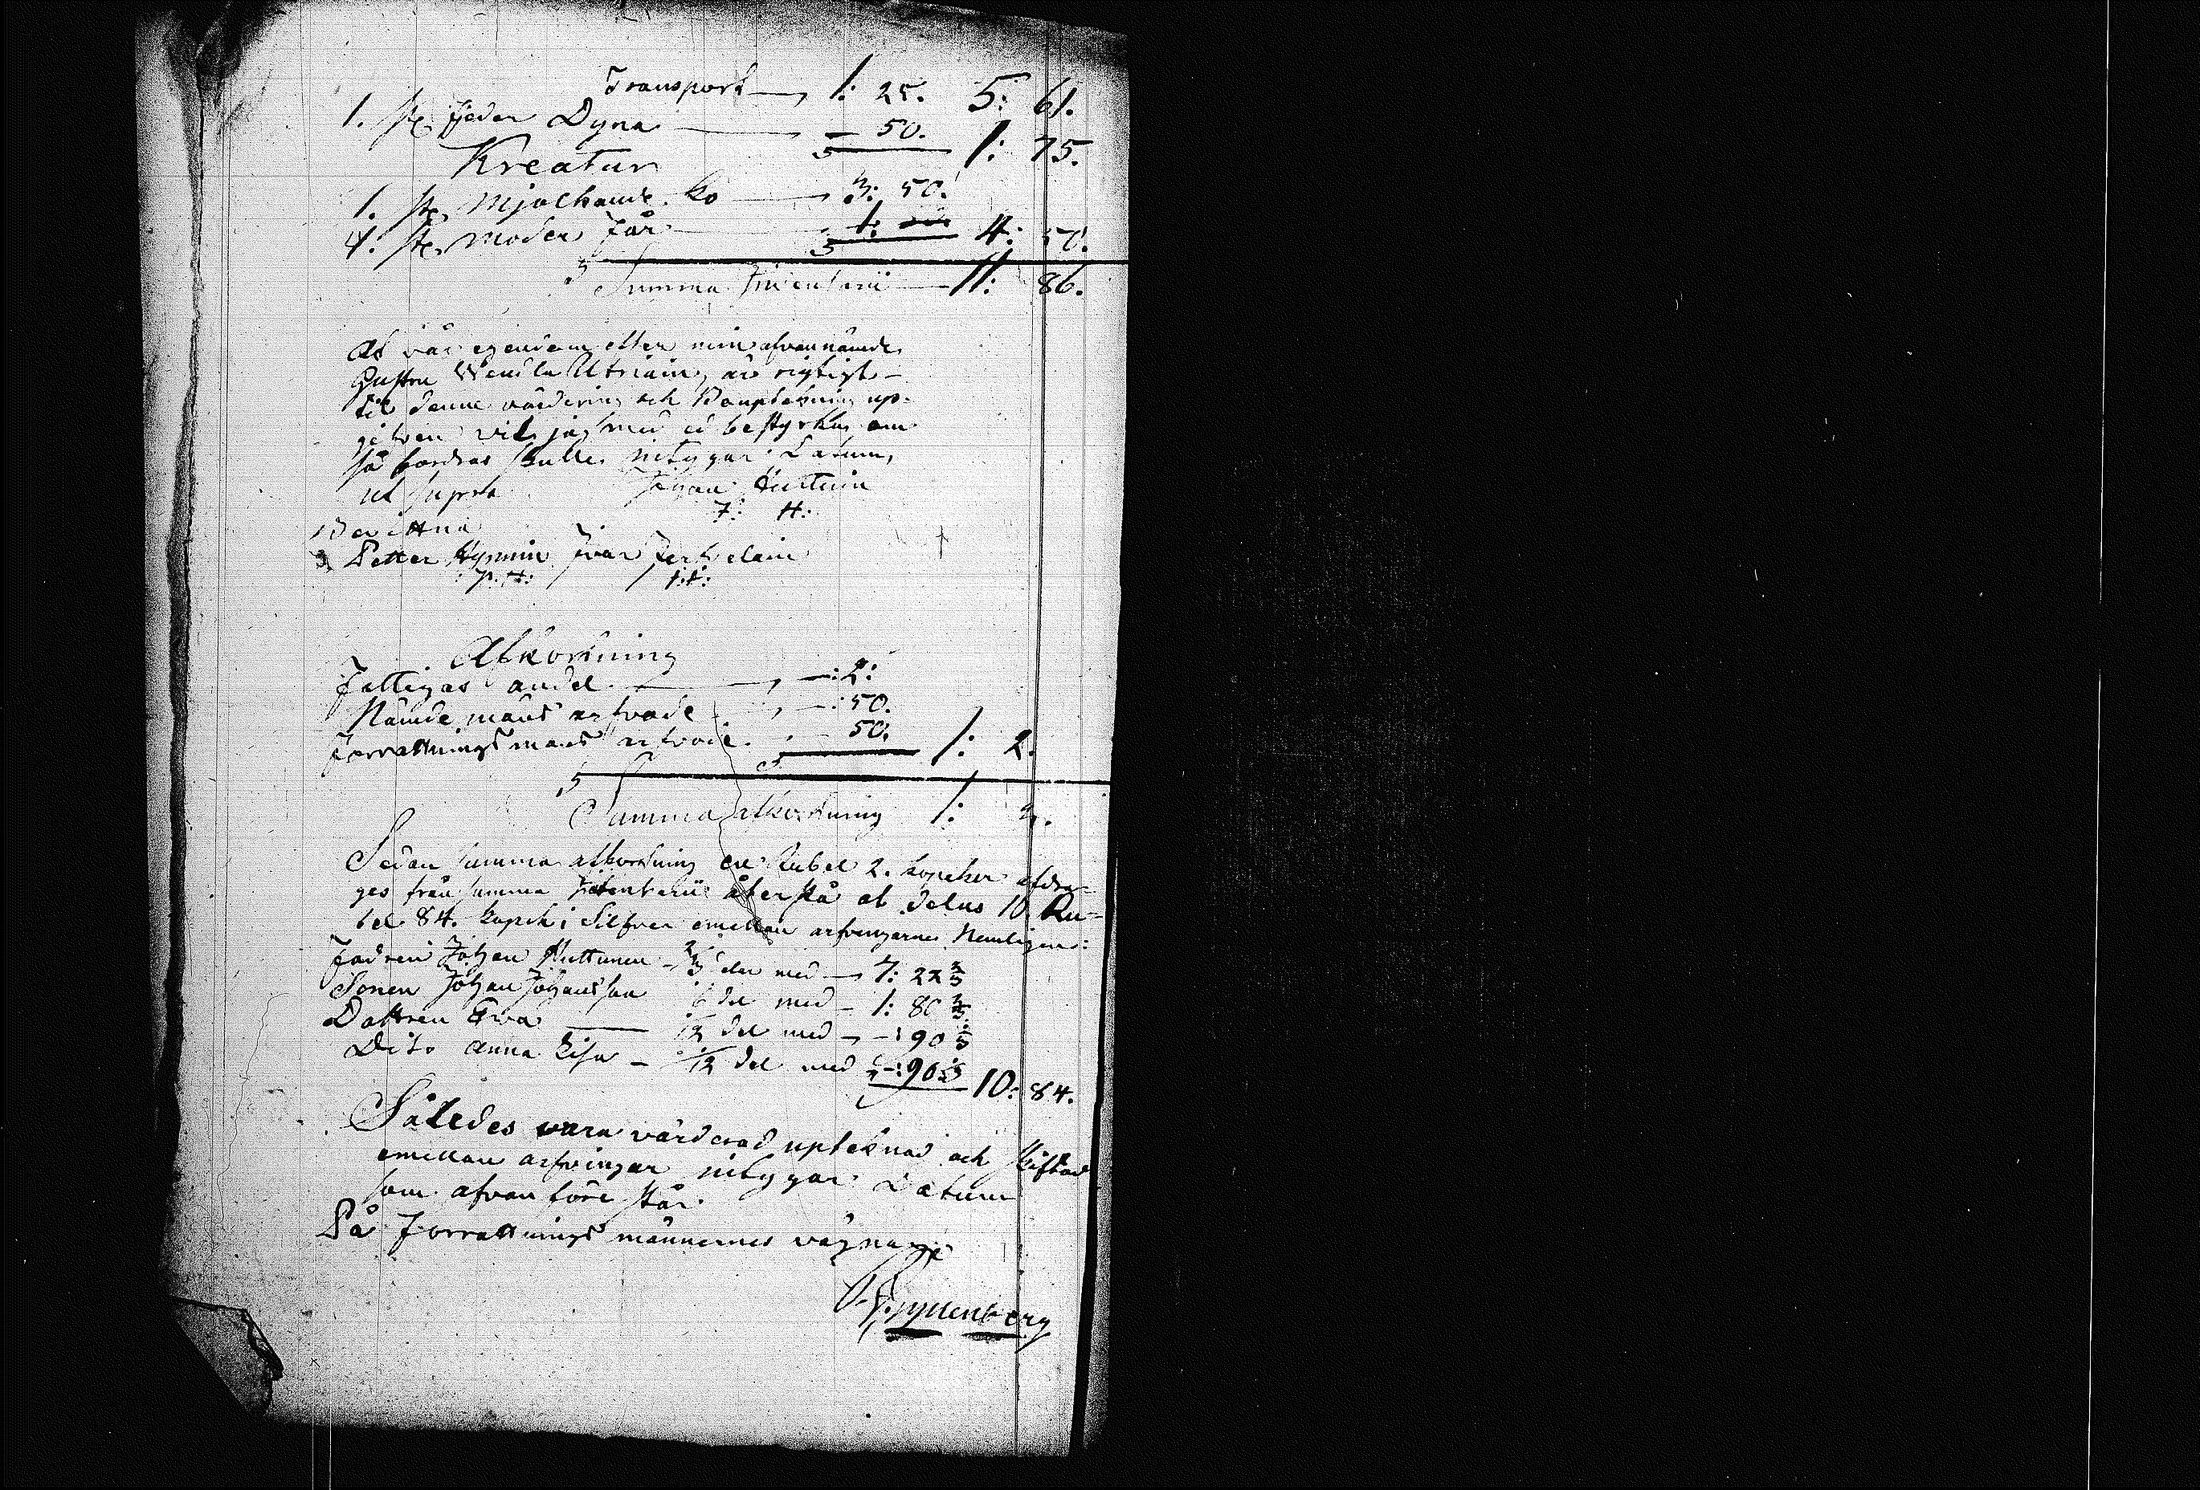 Transport 1: 25. 5: 61.
1. st. fjeder Dyna — 50. 1: 75.
Kreatur
1. st. Mjölkande ko 3: 50.
4. st. Moder Får 1: 4: 50.
Summa Inventarii 11: 86.
At vår egendom efter min afvannämde
hustru Wendla Utriain, är rigtigt
til denne värdering och Bouptekning up-
gifven vil jag med ed bestyrka, om
så fordras skulle, intygar. Datum,
ut supra Johan Huttuin
J: H:
Bevittna
Petter Hypnin Ivar Terfvelain
P: H: I: T:
Afkortning
Fattigas andel — : 2:
Nämde mans arfvode — : 50.
Forrattningsmans arfvode — 50. 1: 2.
Summa afkortning 1: 2.
Sedan summa afkortning en Rubel 2. kopeker afdra-
ges från summa Inventarii återstå at delas 10 Ru-
bel 84. kopek i Silfver emellan arfvingarne Nemligen:
Fadren Johan Huttunen — 2/3 del med — 7: 22 2/3
Sonen Johan Johansson 1/6 del med — 1: 80 2/3
Dottren Eva — 1/12 del med — : 90 1/3
Dito Anna Lisa — 1/12 del med — : 90 1/3 10: 84.
Således vara värderad upteknad och skiftad
emellan arfvingar intygar Datum
som afvan före står.
På Forrattnings männernes vägnar